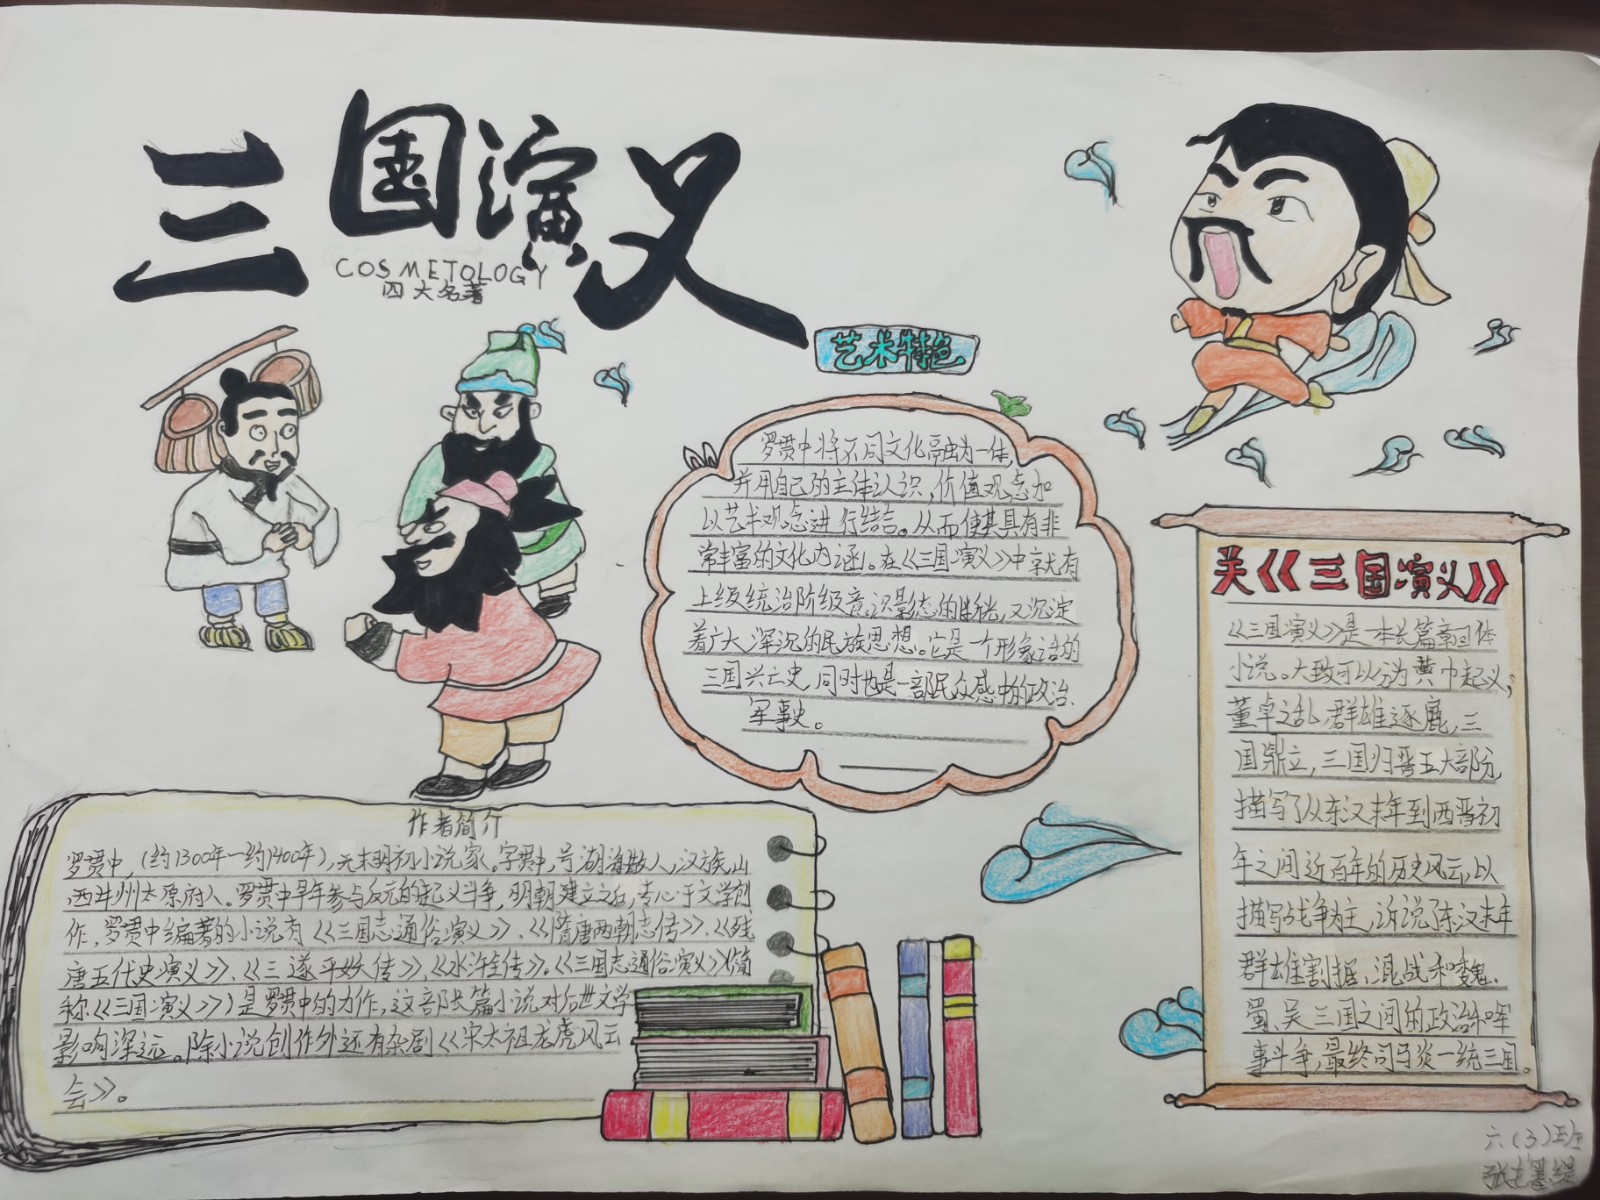 三国演义
COSMETOLOGY
四大名著
艺术特色
罗贯中将不同文化融为一体,
并用自己的主体认识,价值观念加
以艺术观念进行结合。从而使其具有非
常丰富的文化内涵。在《三国演义》中就有
上级统治阶级意识影态的,又沉淀
着广大深沉的民族思想。它是一个形象活的
三国兴亡史,同时也是一部民众感中的政治、
军事史。
关《三国演义》
《三国演义》是一本长篇章回体
小说。大致可以分为黄巾起义,
董卓之乱,群雄逐鹿,三
国鼎立,三国归晋五大部分,
描写了从东汉末年到西晋初
年之间近百年的历史风云,以
描写战争为主,诉说东汉末年
群雄割据,混战和魏.
蜀.吴三国之间的政治和
事斗争,最终司马炎一统三国。
作者简介
罗贯中,(约1300年一约1400年),元末明初小说家。字贯中,号湖海散人,汉族,山
西并州太原府人。罗贯中早年参与反元的起义斗争,明朝建立之后,专心于文学创
作,罗贯中编著的小说有《三国志通俗演义》、《隋唐两朝志传》、《残
唐五代史演义》、《三遂平妖传》、《水浒全传》。《三国志通俗演义》(简
称《三国演义》)是罗贯中的力作,这部长篇小说对后世文学
影响深远。除小说创作外还有杂剧《宋太祖龙虎风云
会》。
六(3)班
张